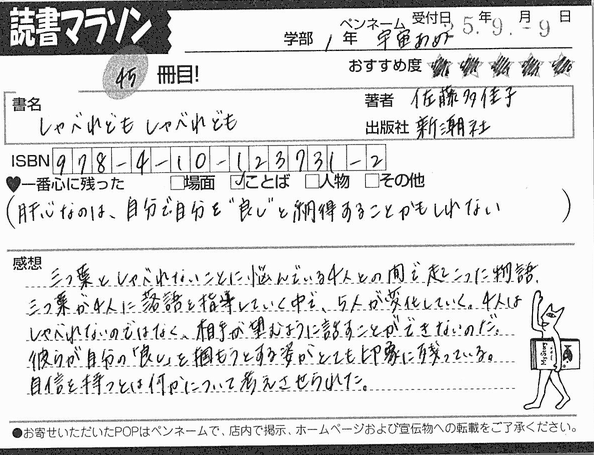 読書マラソン
ペンネーム 受付日 25.年9.月-9日
学部 1年 宇宙
45冊目!
おすすめ度
書名
しゃべれども しゃべれども
著者 佐藤多佳子
出版社 新潮社
ISBN 978-4-10-123731-2
♥一番心に残った □場面 ☑ことば □人物 □その他
(肝心なのは、自分で自分を"良し"と納得することかもしれない)
感想
三つ葉としゃべれないことに悩んでいる4人との間で起こった物語.
三つ葉が4人に落語を指導していく中で、5人が変化していく。4人は
しゃべれないのではなく、相手が望むように話すことができないのだ。
彼らが自分の「良し」を掴もうとする姿がとても印象に残っている。
自信を持つとは何かについて考えさせられた。
●お寄せいただいたPOPはペンネームで、店内で掲示、ホームページおよび宣伝物への転載をご了承ください。